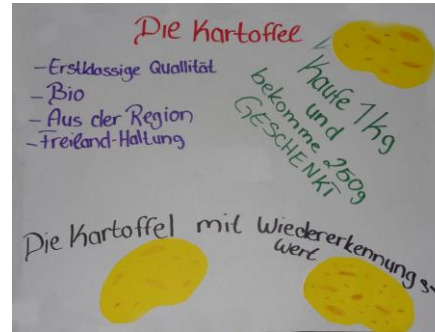 Die Kartoffel
- Erstklassige Quallität
- Bio
- Aus der Region
- Freiland-Haltung
Kaufe 1kg
und
bekomme 250g
GESCHENKT
Die Kartoffel mit Wiedererkennungs-
wert